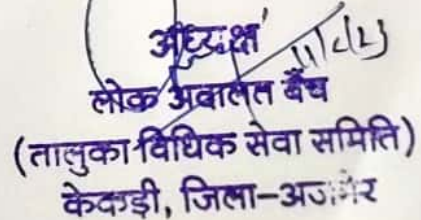 अध्यक्ष
लोक अदालत बैंच
(तालुका विधिक सेवा समिति)
केकड़ी, जिला-अजमेर